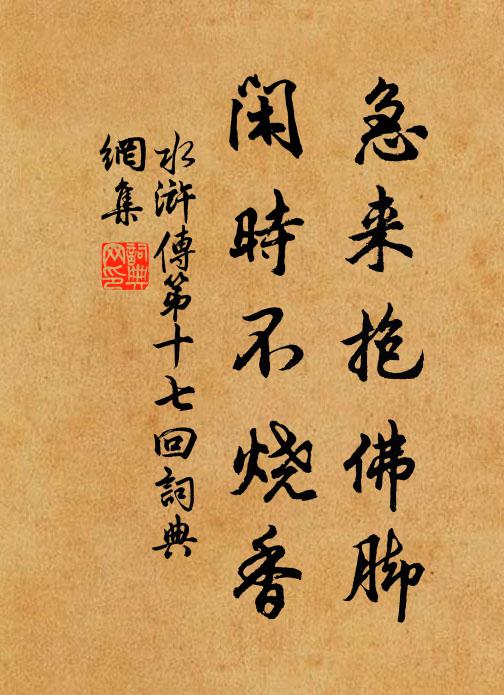 急来抱佛脚
閑時不燒香
水滸傳第十七回詞典
網集
詞典
网印